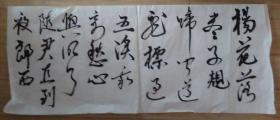 楊花落
盡子規
啼聞道
龍標過
五溪我
寄愁心
與明月
隨君直到
夜郎西